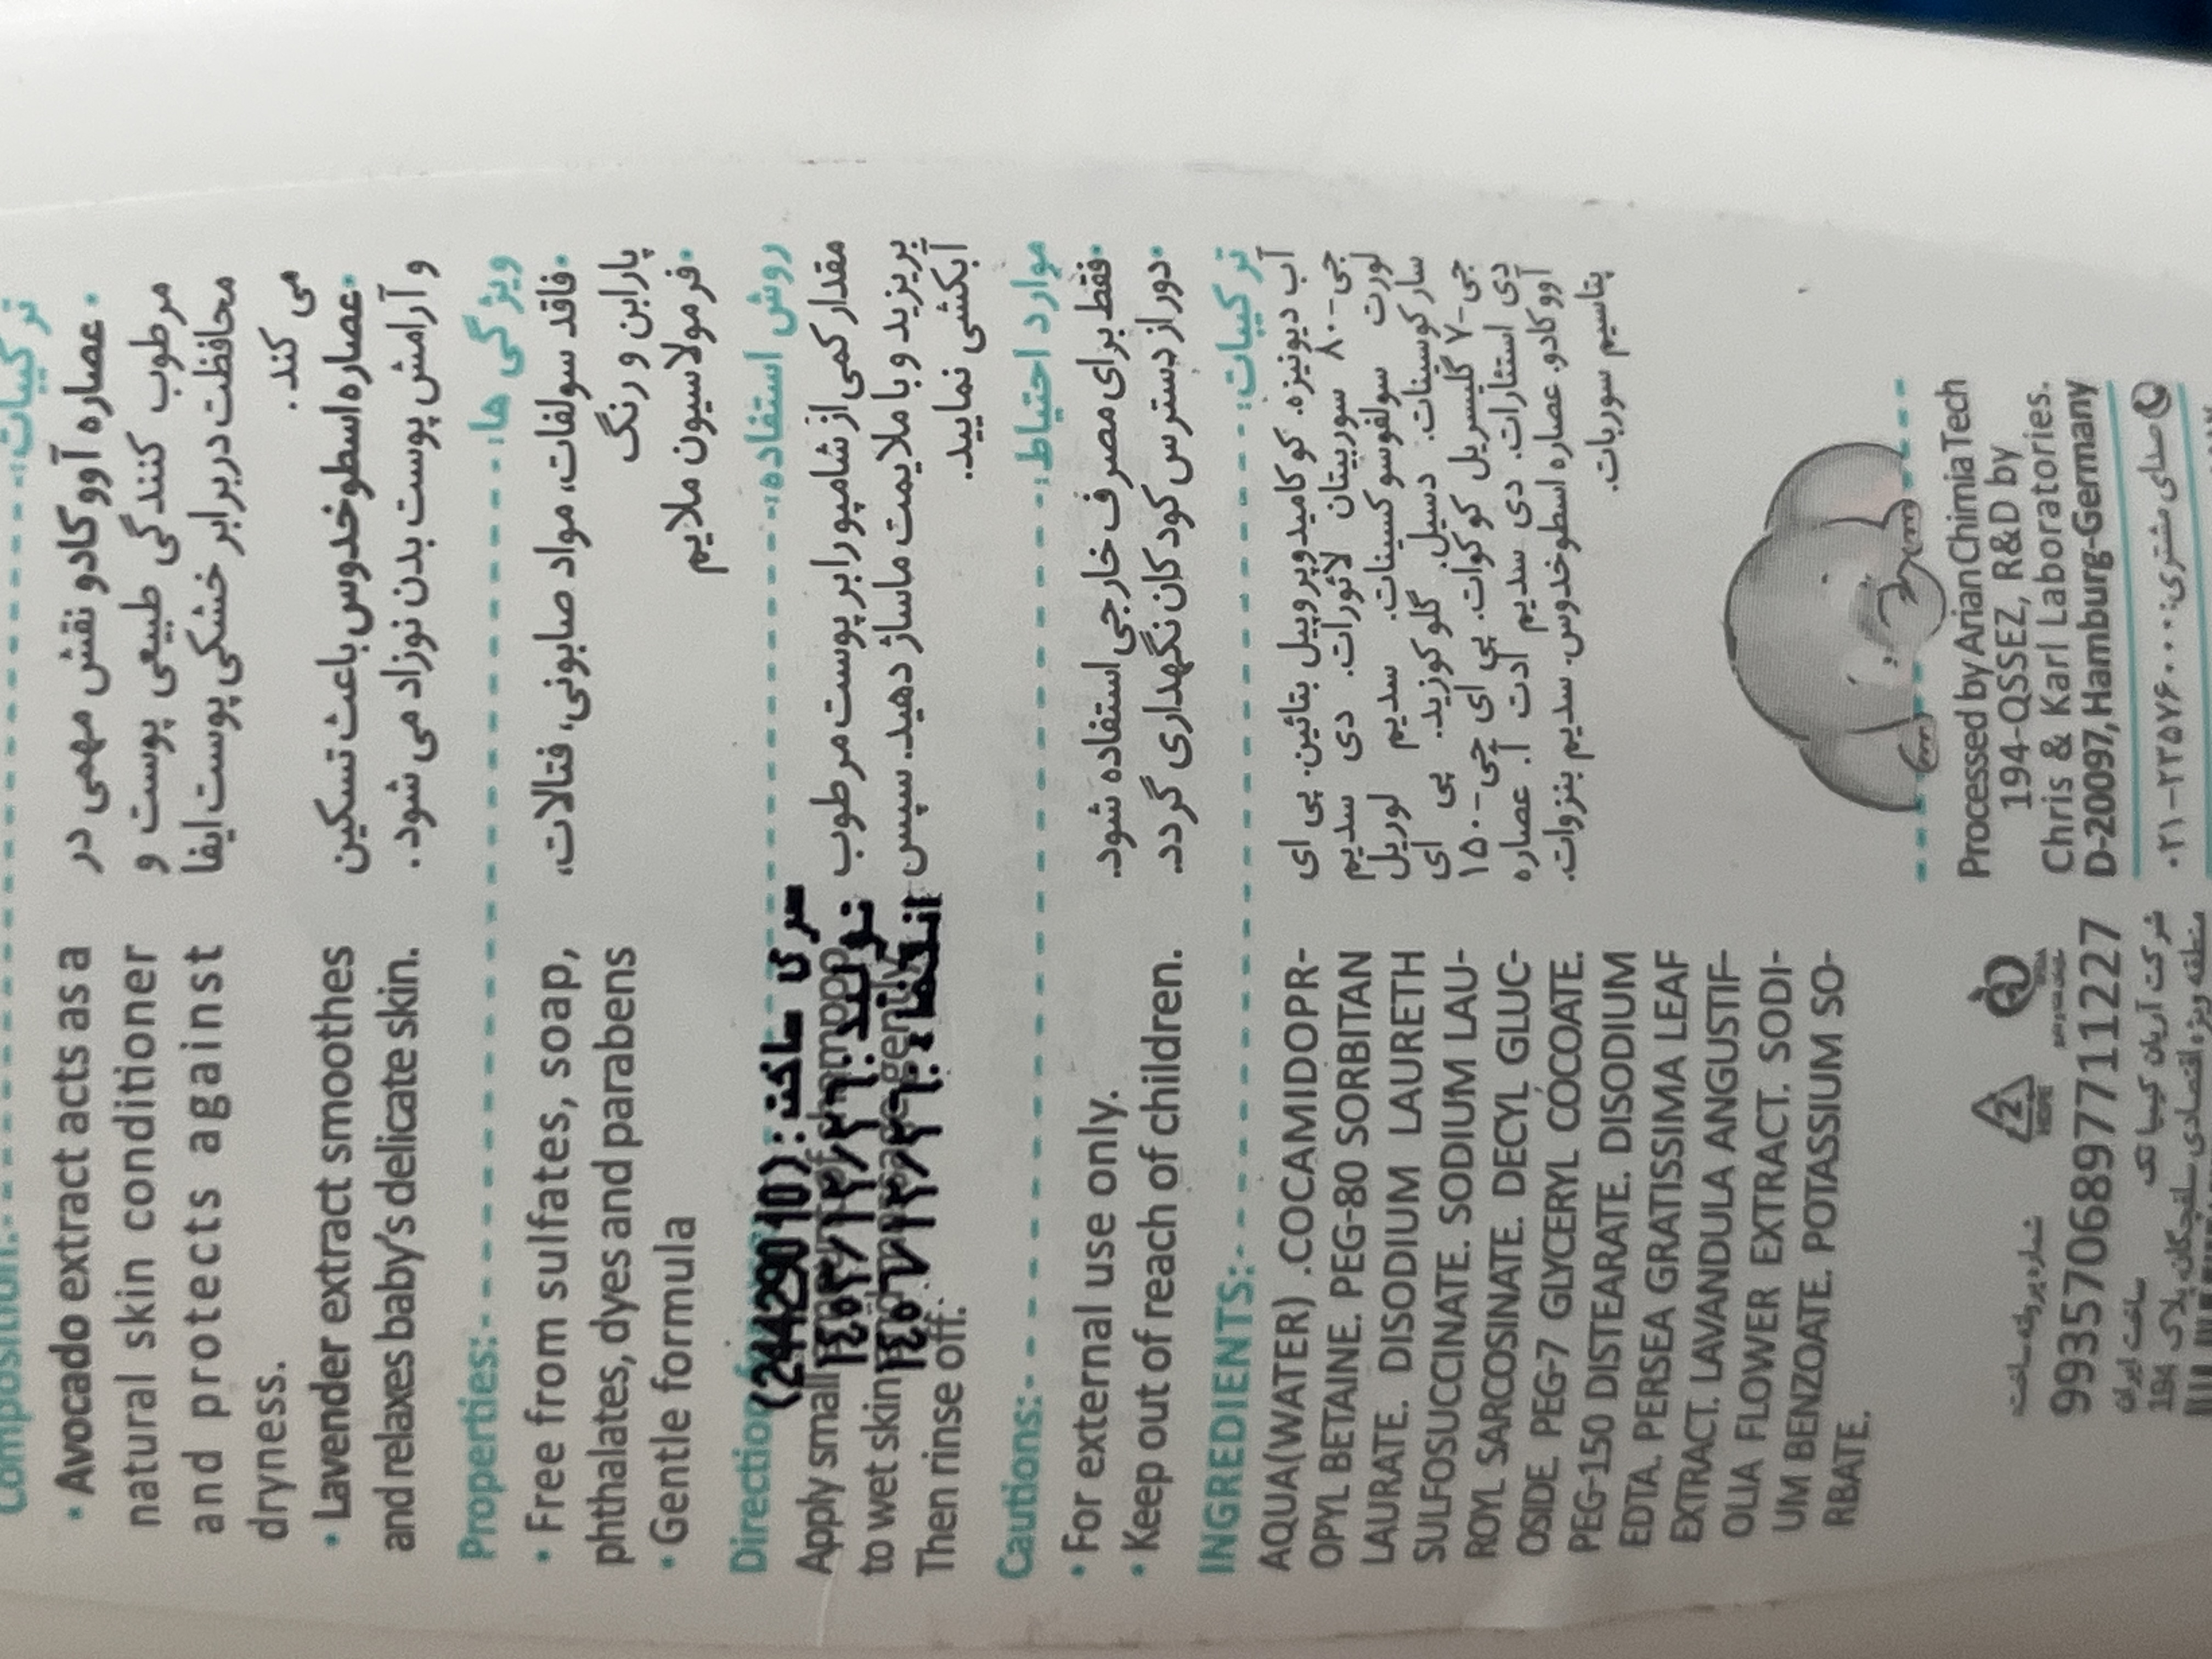 Composition:
• Avocado extract acts as a
natural skin conditioner
and protects against
dryness.
• Lavender extract smoothes
and relaxes baby's delicate skin.
Properties:
• Free from sulfates, soap,
phthalates, dyes and parabens
• Gentle formula
Direction
Apply small
to wet skin
Then rinse off.
سری ساخت: (2442901D)
تولید: ١٤٠٤/١٢/٢٦
انقضا: ١٤٠٧/١٢/٢٦
Cautions:
• For external use only.
• Keep out of reach of children.
INGREDIENTS:
AQUA(WATER) .COCAMIDOPR-
OPYL BETAINE. PEG-80 SORBITAN
LAURATE. DISODIUM LAURETH
SULFOSUCCINATE. SODIUM LAU-
ROYL SARCOSINATE. DECYL GLUC-
OSIDE. PEG-7 GLYCERYL COCOATE.
PEG-150 DISTEARATE. DISODIUM
EDTA. PERSEA GRATISSIMA LEAF
EXTRACT. LAVANDULA ANGUSTIF-
OLIA FLOWER EXTRACT. SODI-
UM BENZOATE. POTASSIUM SO-
RBATE.
ترکیبات:
• عصاره آووکادو نقش مهمی در
مرطوب کنندگی طبیعی پوست و
محافظت در برابر خشکی پوست ایفا
می کند.
• عصاره اسطوخدوس باعث تسکین
و آرامش پوست بدن نوزاد می شود.
ویژگی ها:
• فاقد سولفات، مواد صابونی، فتالات،
پارابن و رنگ
• فرمولاسیون ملایم
روش استفاده:
مقدار کمی از شامپو را بر پوست مرطوب
بریزید و با ملایمت ماساژ دهید. سپس
آبکشی نمایید.
موارد احتیاط:
• فقط برای مصرف خارجی استفاده شود.
• دور از دسترس کودکان نگهداری گردد.
ترکیبات:
آب دیونیزه. کوکامیدوپروپیل بتائین. پی ای
جی-۸۰ سوربیتان لائورات. دی سدیم
لورت سولفوسوکسینات. سدیم لوریل
سارکوسینات. دسیل گلوکوزید. پی ای
جی-۷ گلیسریل کوکوات. پی ای جی-۱۵۰
دی استئارات. دی سدیم ادت آ. عصاره
آووکادو. عصاره اسطوخدوس. سدیم بنزوات.
پتاسیم سوربات.
2
HDPE
شماره پروانه ساخت
9935706897711227
ساخت ایران شرکت آریان کیمیا تک
منطقه ویژه اقتصادی سلفچگان پلاک 194
Processed by Arian Chimia Tech
194-QSSEZ, R&D by
Chris & Karl Laboratories.
D-20097, Hamburg-Germany
صدای مشتری: ۰۲۱-۲۲۵۷۶۰۰۰